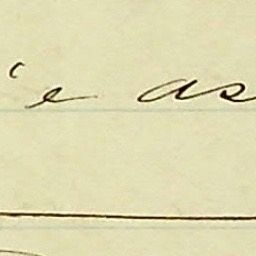 'e as